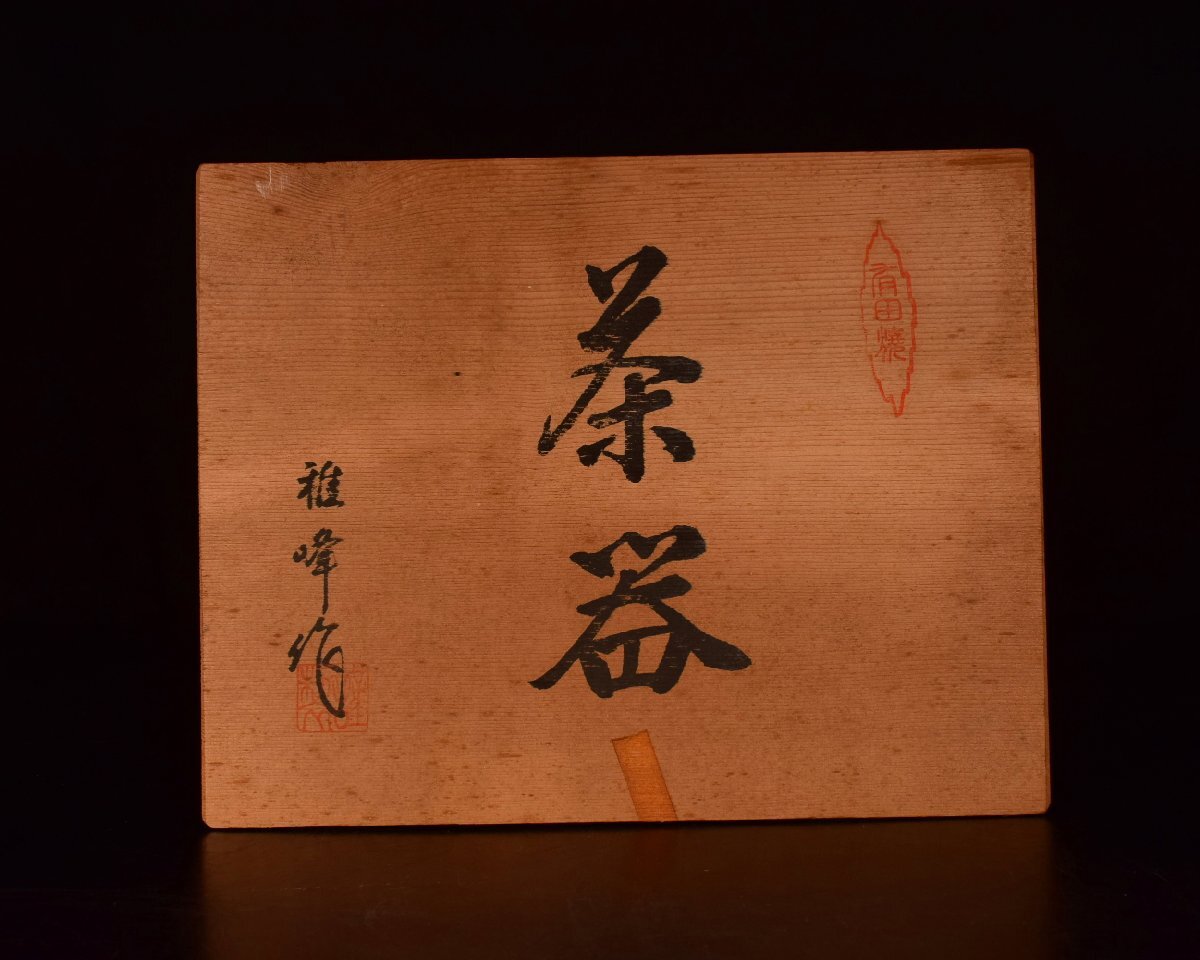 有田燒
茶器
雅峰作